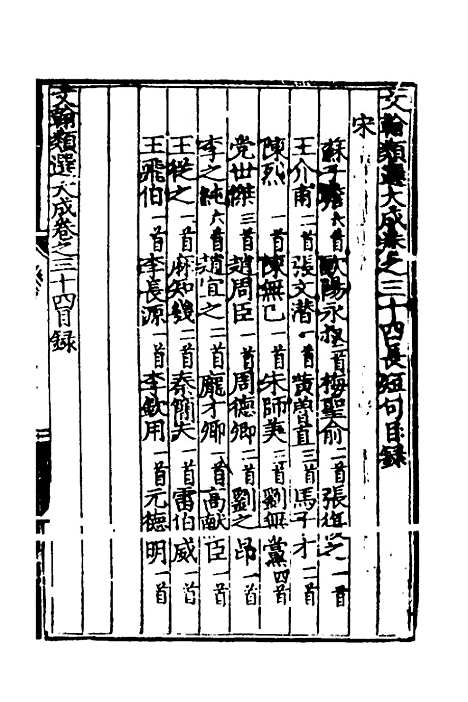 文翰類選大成卷之三十四長短句目錄
宋
蘇子瞻六首歐陽永叔二首梅聖俞二首張復之一首
王介甫二首張文潛一首黃魯直三首馬子才二首
陳烈一首陳無己一首宋師美二首劉無黨四首
党世傑三首趙周臣一首周德卿二首劉之昂一首
李之純六首趙宜之二首龐才卿一首高獻臣一首
王從之一首麻知幾二首秦簡夫一首雷伯威一首
王飛伯一首李長源一首李欽用一首元德明一首
文翰類選大成卷之三十四目録